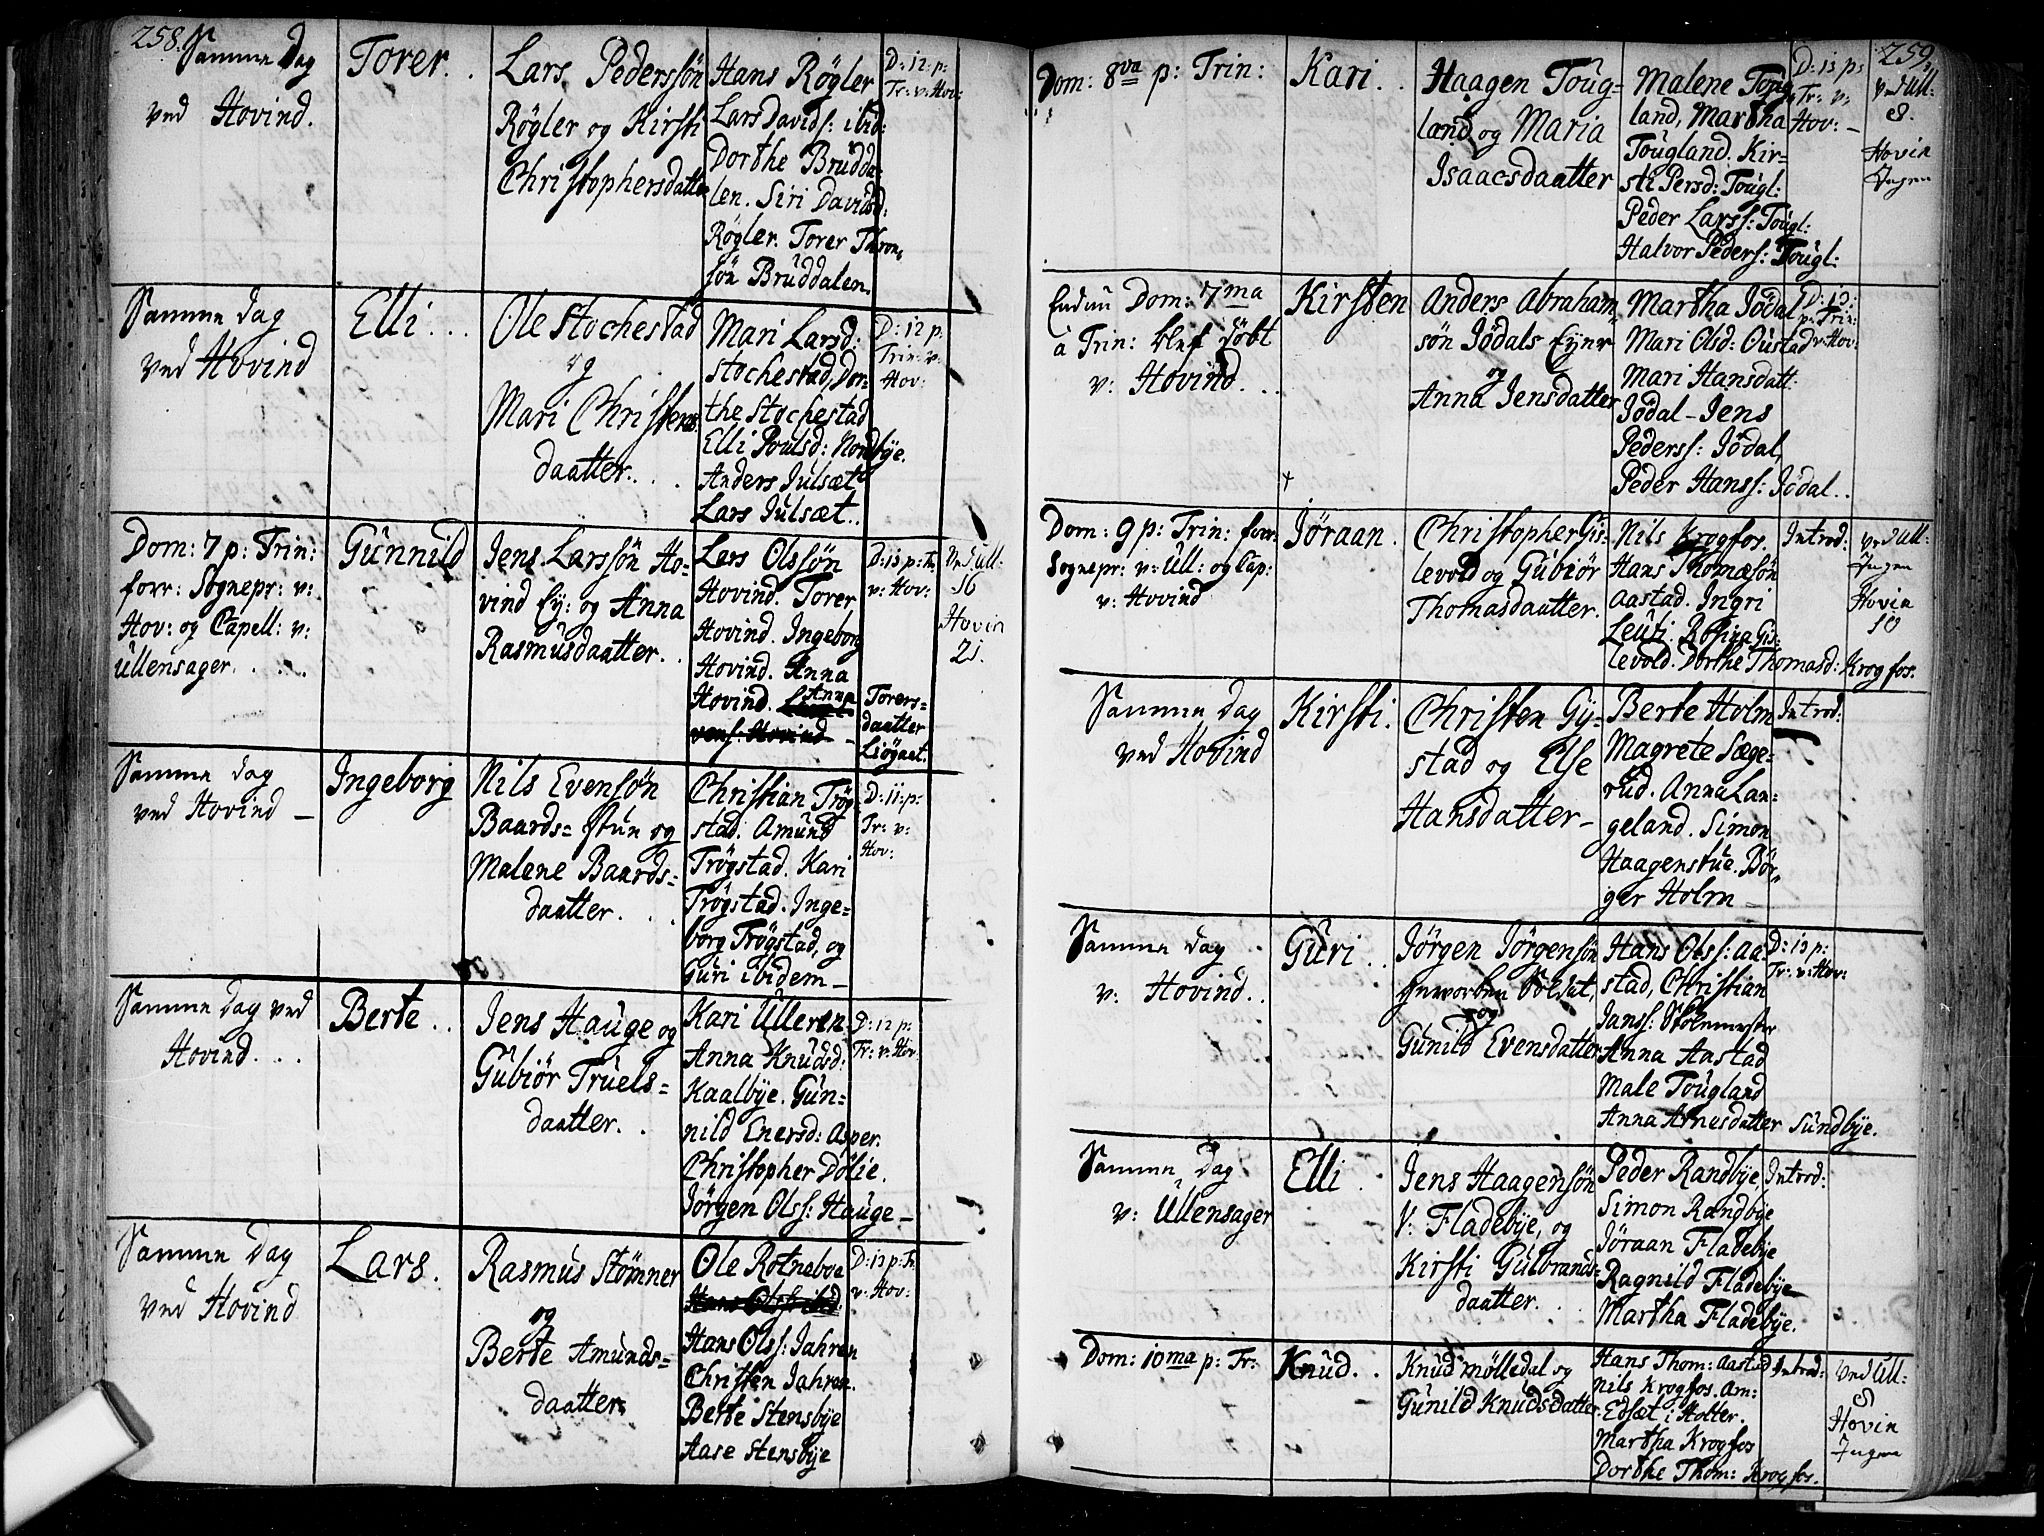 258.
Samme Dag
ved Hovind.
Torer.
Lars Pederssön
Røgler og Kirsti
Christophersdatter
Hans Røgler
Lars Davids: ibid:
Dorthe Brudda-
len. Siri Davidsd:
Røgler. Torer Thron-
sön Bruddalen.
D: 12 p:
Tr: v: Hov:
Samme Dag
ved Hovind
Elli...
Ole Stochestad
og
Mari Christens
daatter...
Mari Larsd:
Stochestad, Dor-
the Stochestad
Elli Poulsd: Nordbÿe.
Anders Julsæt
Lars Julsæt..
D: 12 p:
Trin: v:
Hov:
Dom: 7 p: Trin:
forr: Sognepr: v:
Hov: og Capell: v:
Ullensager....
Gunnild
Jens Larssön Ho-
vind Ey: og Anna
Rasmusdaatter..
Lars Olssön
Hovind. Torer
Hovind. Ingeborg
Hovind. Anna
Hovind. Anna
Torers-
daatter
Liøgaat.
D: 13 p: Tr:
v: Hov:
Ved Ull:
16
Hovin
21.
Samme Dag
ved Hovind –
Ingeborg
Nils Evensön
Baards= stun og
Malene Baards=
daatter...
Christian Trøg-
stad. Amund
Trøgstad. Kari
Trøgstad. Inge=
borg Trøgstad, og
Guri ibidem –
D: 11: p:
Tr: v:
Hov:
Samme Dag ved
Hovind...
Berte..
Jens Hauge og
Gubiør Truels=
daatter..
Kari Ulleren
Anna Knudsd:
Kaalbÿe. Gun=
nild Enersd: Asper.
Christopher Dølie.
Jørgen Olss: Hauge –
D: 12 p:
Tr: v: Hov:
Samme Dag
ved Hovind
Lars.
Rasmus Stømner
og
Berte Amunds=
daatter
Ole Rotneboe
Hans Olss: Jahren
Christen Jahren.
Berte Stensbÿe
Aase Stensbÿe
D: 13 p: Tr:
v: Hov:
259.
Dom: 8va p: Trin:
Kari..
Haagen Toug=
land og Maria
Isaacsdaatter
Malene Toug-
land, Martha
Tougland. Kir=
sti Persd: Tougl:
Peder Larss: Tougl:
Halvor Peders: Tougl:
D: 13 p:
Tr: v:
Hov: –
Ved Ull:
8.
Hovin
Ingen
Endnu Dom: 7ma
a Trin: blef döbt
v: Hovind...
Kirsten
Anders Abraham-
sön Jödals Eyer
og
Anna Jensdatter
Martha Jödal
Mari Olsd: Oustad
Mari Hansdatt:
Jödal – Jens
Pederss: Jödal,
Peder Hanss: Jödal..
D: 13:
p: Trin:
v: Hov:
Dom: 9 p: Trin: forr:
Sognepr: v: Ull: og Cap:
v: Hovind
Jøraan.
Christopher Gis-
levold og Gubiør
Thomasdaatter.
Nils Krogfos.
Hans Thomæsön
Aastad. Ingri
Leuti. Rosina Gis-
levold. Dorthe Thomasd: Krogfos.
Introd:
ved Ull:
Ingen
Hovin
10
Samme Dag
ved Hovind
Kirsti.
Christen Gÿ-
stad og Else
Hansdatter –
Berte Holm
Magrete Sæge-
rud. Anna Lan=
geland. Simon
Haagenstue. Bør-
ger Holm –
Introd:
Samme Dag
v: Hovind..
Guri..
Jørgen Jørgensön
hverven Soldat,
og
Gunild Evensdatter
Hans Olss: Aa-
stad, Christian
Janss: Skolemester
Anna Aastad
Male Tougland
Anna Arnesdatter Sundbÿe.
D: 13 p:
Tr: v: Hov:
Samme Dag
v: Ullensager
Elli.
Jens Haagensön
V: Fladebÿe, og
Kirsti Gulbrands-
daatter..
Peder Randbÿe
Simon Randbÿe
Jøraan Fladebÿe
Ragnild Fladebÿe
Martha Fladebÿe.
Introd:
Dom: 10ma p: Tr:
Knud..
Knud Mølledal og
Gunild Knudsdatter.
Hans Thom: Aastad
Nils Krogfos. Am:
Edsæt i Holter.
Martha Krogfos
Dorthe Thom: Krogfos.
Introd:
Ved Ull:
8
Hovin
Ingen